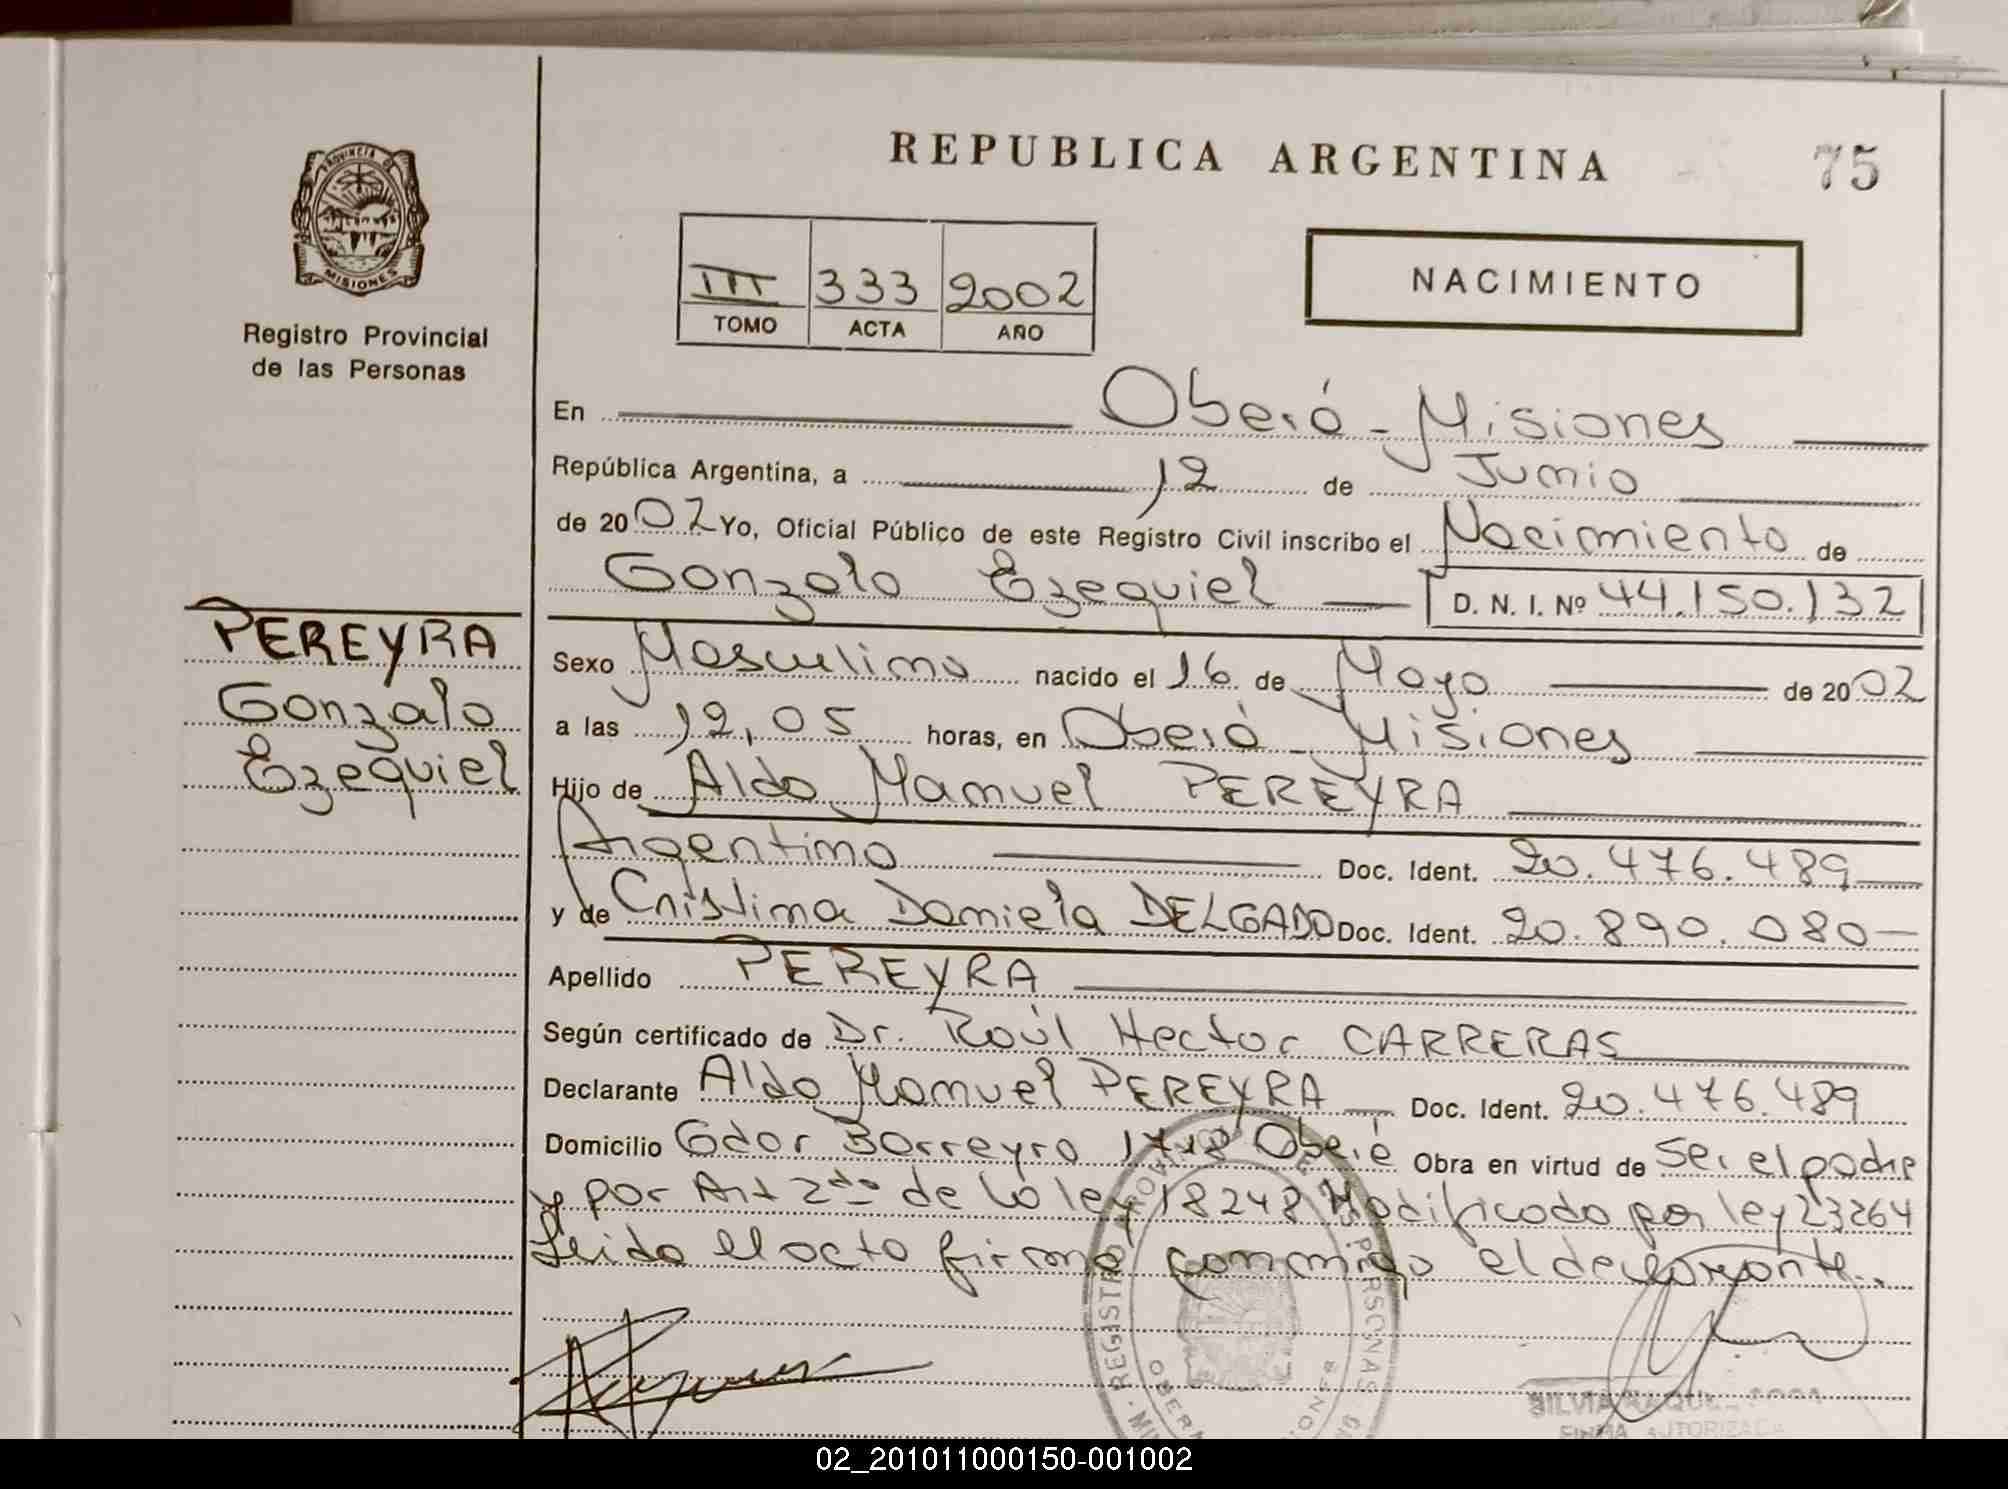 REPUBLICA ARGENTINA
75
PROVINCIA DE
MISIONES
Registro Provincial
de las Personas
III 333 2002
TOMO ACTA AÑO
NACIMIENTO
En Oberá - Misiones
República Argentina, a 12 de Junio
de 2002 Yo, Oficial Público de este Registro Civil inscribo el Nacimiento de
Gonzalo Ezequiel D. N. I. Nº 44.150.132
PEREYRA
Gonzalo
Ezequiel
Sexo Masculino nacido el 16 de Mayo de 2002
a las 12,05 horas, en Oberá - Misiones
Hijo de Aldo Manuel PEREYRA
Argentino Doc. Ident. 20.476.489
y de Cristina Daniela DELGADO Doc. Ident. 20.890.080
Apellido PEREYRA
Según certificado de Dr. Raúl Hector CARRERAS
Declarante Aldo Manuel PEREYRA Doc. Ident. 20.476.489
Domicilio Gdor Barreyro 1718 Oberá Obra en virtud de ser el padre
y por Art 2do de la ley 18248 Modificado por ley 23264
Leida el acta firma conmigo el declarante..
REGISTRO DE LAS PERSONAS
SILVIA RAQUEL
FIRMA AUTORIZADA
02_201011000150-001002